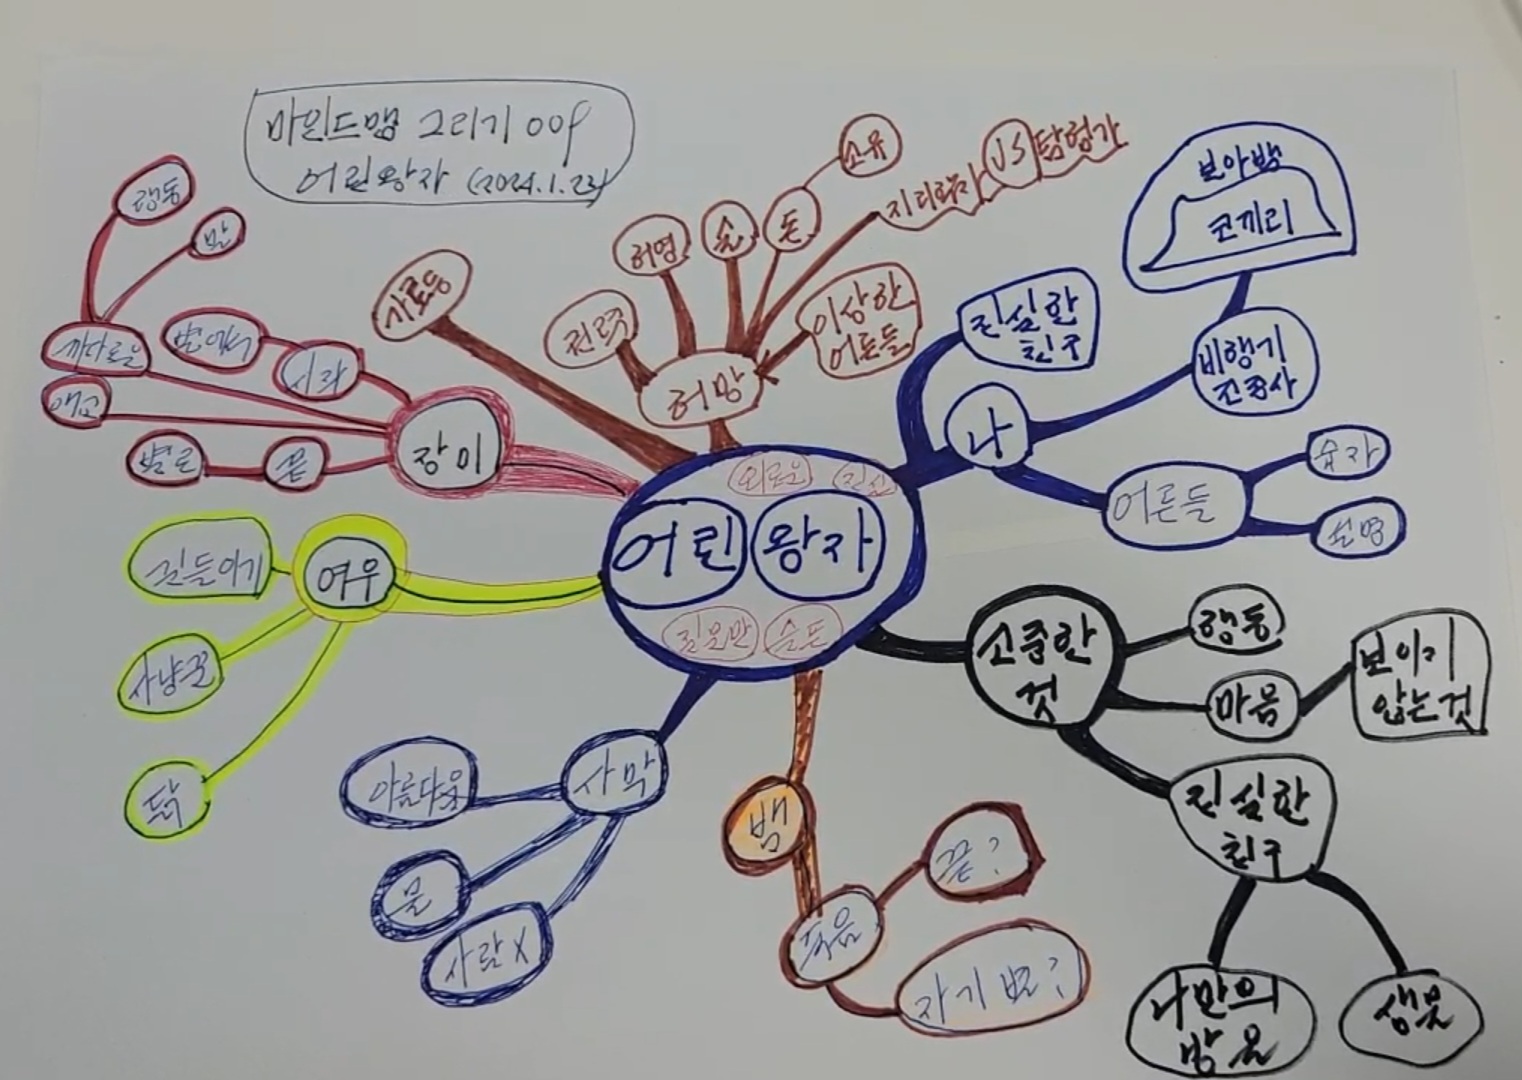 마인드맵 그리기 009
어린왕자 (2024.1.23)
행동
말
까다로움
애교
시작
별로
끝
장미
가로등
권력
허영
술
돈
소유
지리학자 VS 탐험가
이상한
어른들
허망
진실한
친구
나
보아뱀
코끼리
비행기
어른들
숫자
설명
외로움
진실
어린 왕자
질문만
슬픔
여우
길들이기
사냥꾼
닭
사막
아름다움
물
사람 X
뱀
죽음
끝?
자기 별?
소중한
것
행동
마음
보이지
않는 것
진실한
친구
나만의
방울
샘물